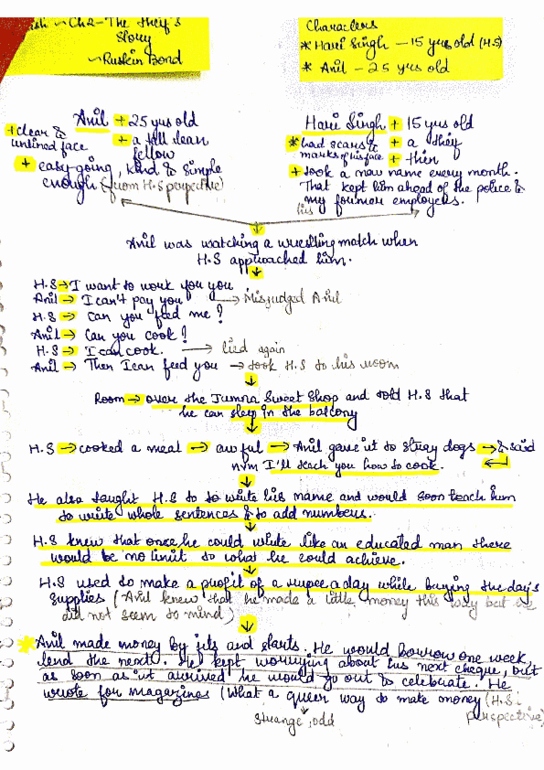 ish ~ Ch2 - The thief's
Story
~ Ruskin Bond
Characters
* Hari Singh - 15 yrs old (H.S)
* Anil - 25 yrs old
Anil + 25 yrs old
+ clear & unlined face
+ a tall lean fellow
+ easy-going, kind & simple
enough (from H.S perspective)
Hari Singh + 15 yrs old
* had scars & marks of his face
+ a thief
+ thin
+ took a new name every month.
That kept him ahead of the police &
my former employers.
his
Anil was watching a wrestling match when
H.S approached him.
H.S → I want to work for you
Anil → I can't pay you → Misjudged Anil
H.S → Can you feed me?
Anil → Can you cook?
H.S → I can cook. → lied again
Anil → Then I can feed you → took H.S to his room
Room → over the Jumna Sweet Shop and told H.S that
he can sleep in the balcony
H.S → cooked a meal → awful → Anil gave it to stray dogs → & said
nvm I'll teach you how to cook.
He also taught H.S to to write his name and would soon teach him
to write whole sentences & to add numbers.
H.S knew that once he could write like an educated man there
would be no limit to what he could achieve.
H.S used to make a profit of a rupee a day while buying the day's
supplies (Anil knew that he made a little money this way but he
did not seem to mind)
* Anil made money by fits and starts. He would borrow one week,
lend the next. He kept worrying about his next cheque, but
as soon as it arrived he would go out & celebrate. He
wrote for magazines (What a queer way to make money (H.S
perspective)
strange, odd